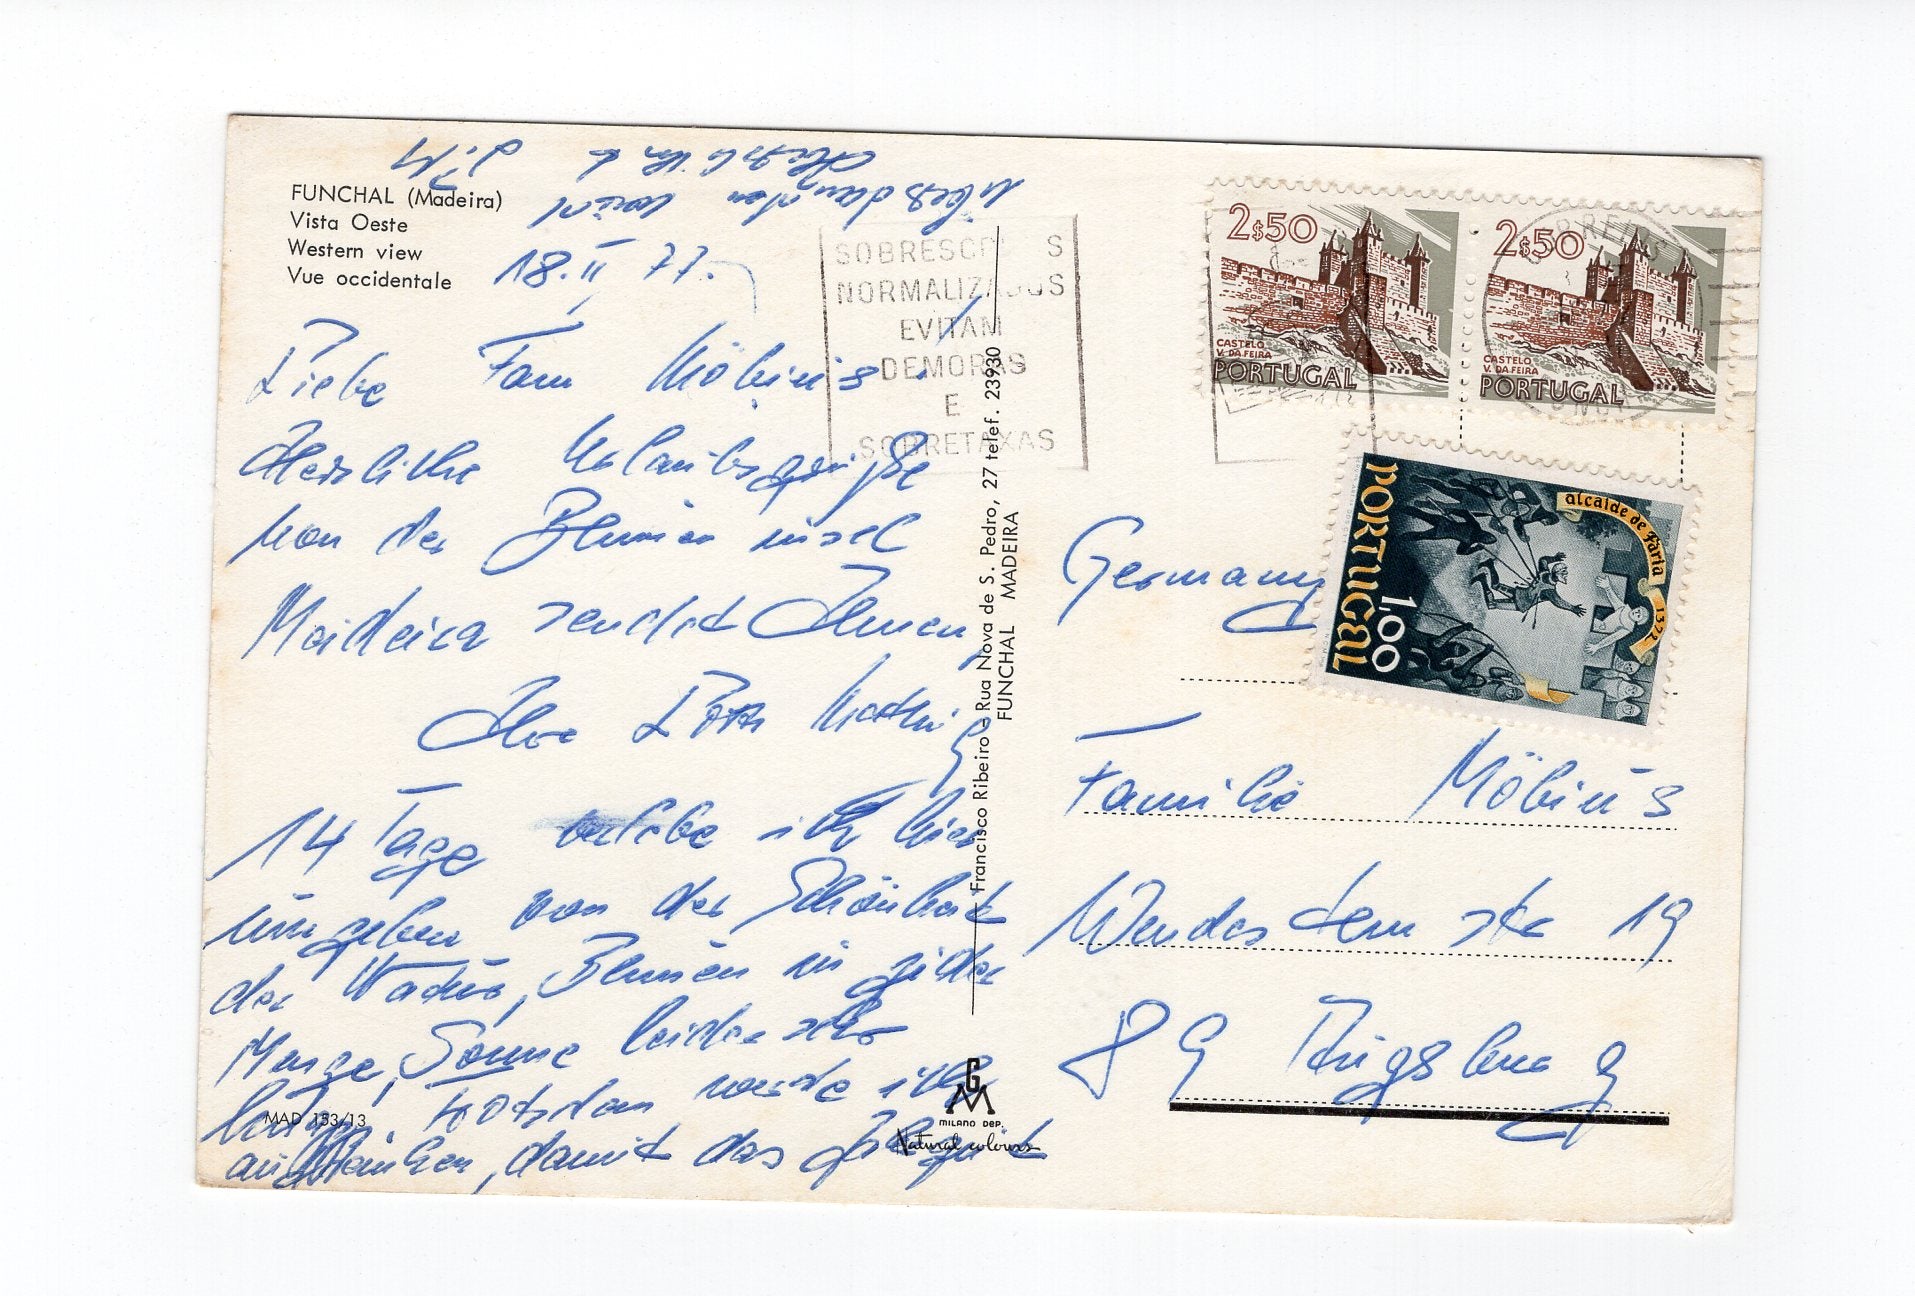 FUNCHAL (Madeira)
Vista Oeste
Western view
Vue occidentale
18. II 77.
Liebe Fam Möbius!
Herzliche Urlaubsgrüße
von der Blumeninsel
Madeira sendet Ihnen
Ihre
14 Tage verlebe ich hier
umgeben von der Schönheit
der Natur, Blumen in jeder
Menge, Sonne leider
trotzdem werde ich
damit das
MAD 153/13
Francisco Ribeiro - Rua Nova de S. Pedro, 27 telef. 23930
FUNCHAL MADEIRA
GM
MILANO DEP.
Natural colours
SOBRESCRITOS
NORMALIZADOS
EVITAM
DEMORAS
E
SOBRETAXAS
2$50
CASTELO
V. DA FEIRA
PORTUGAL
2$50
CASTELO
V. DA FEIRA
PORTUGAL
CORREIOS
alcaide de faria 1372
PORTUGAL
1,00
Germany
Familie Möbius
19
89 Augsburg